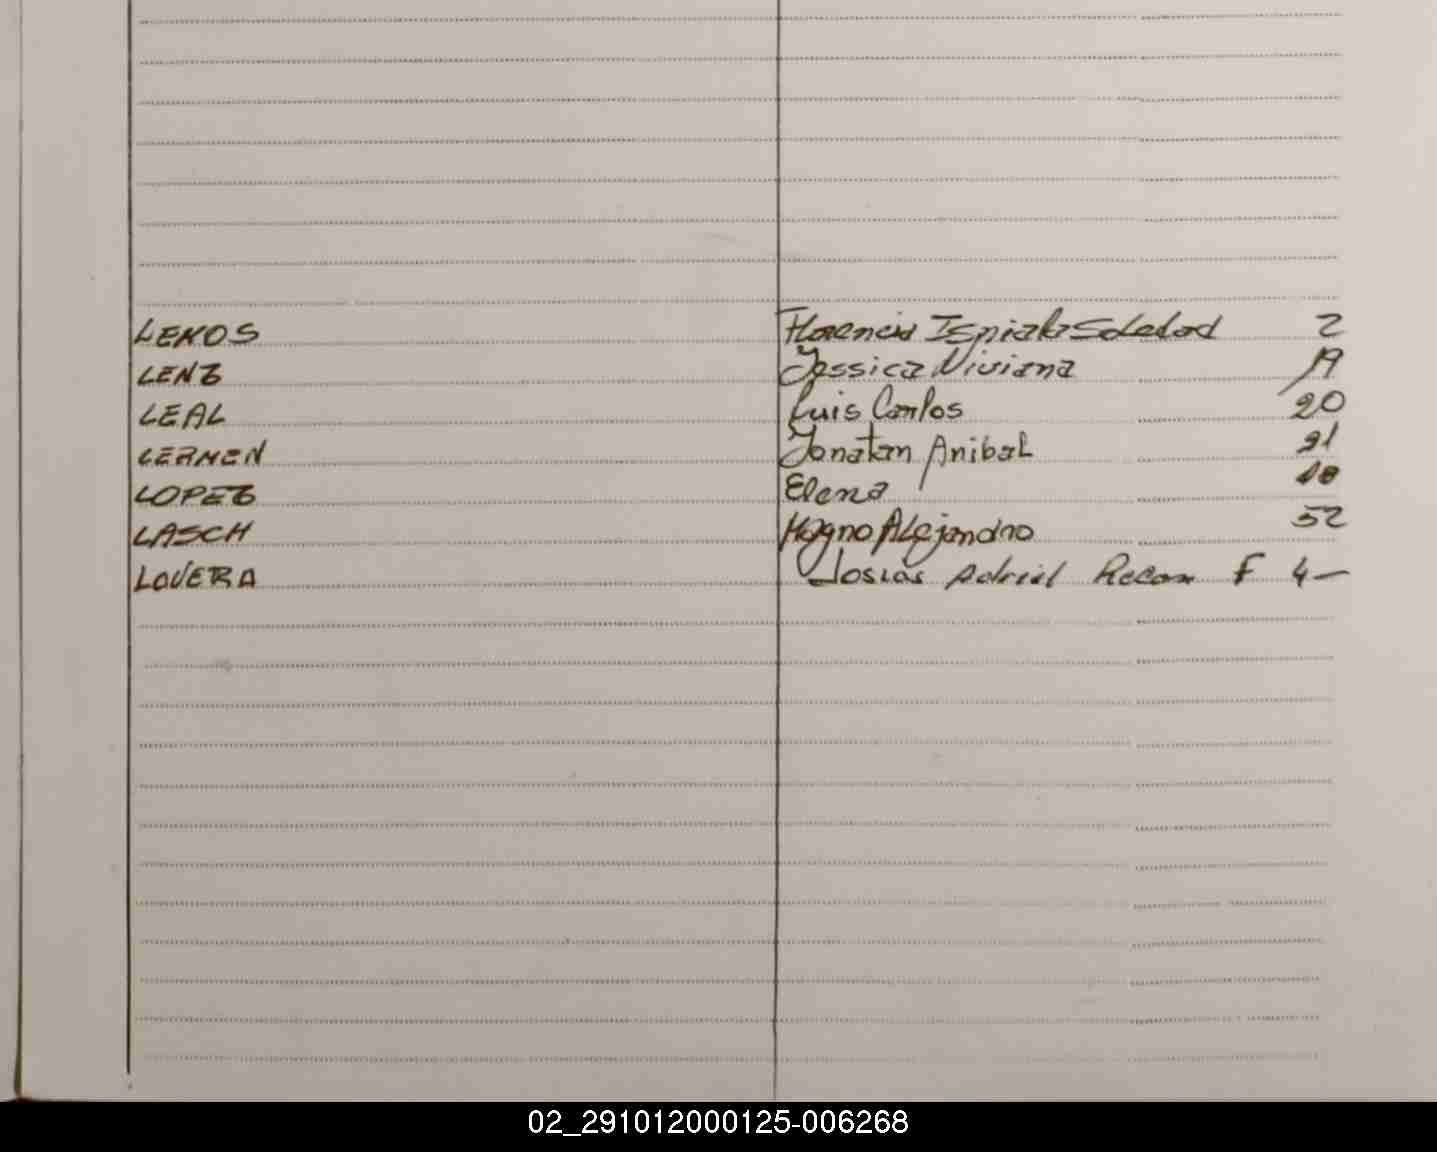 LEMOS Florencia Soledad 2
LENZ Jessica Viviana 19
LEAL Luis Carlos 20
LERMEN Jonatan Anibal 21
LOPEZ Elena
LASCH Magno Alejandro 52
LOVERA Josias Adriel Recon F 4—
02_291012000125-006268